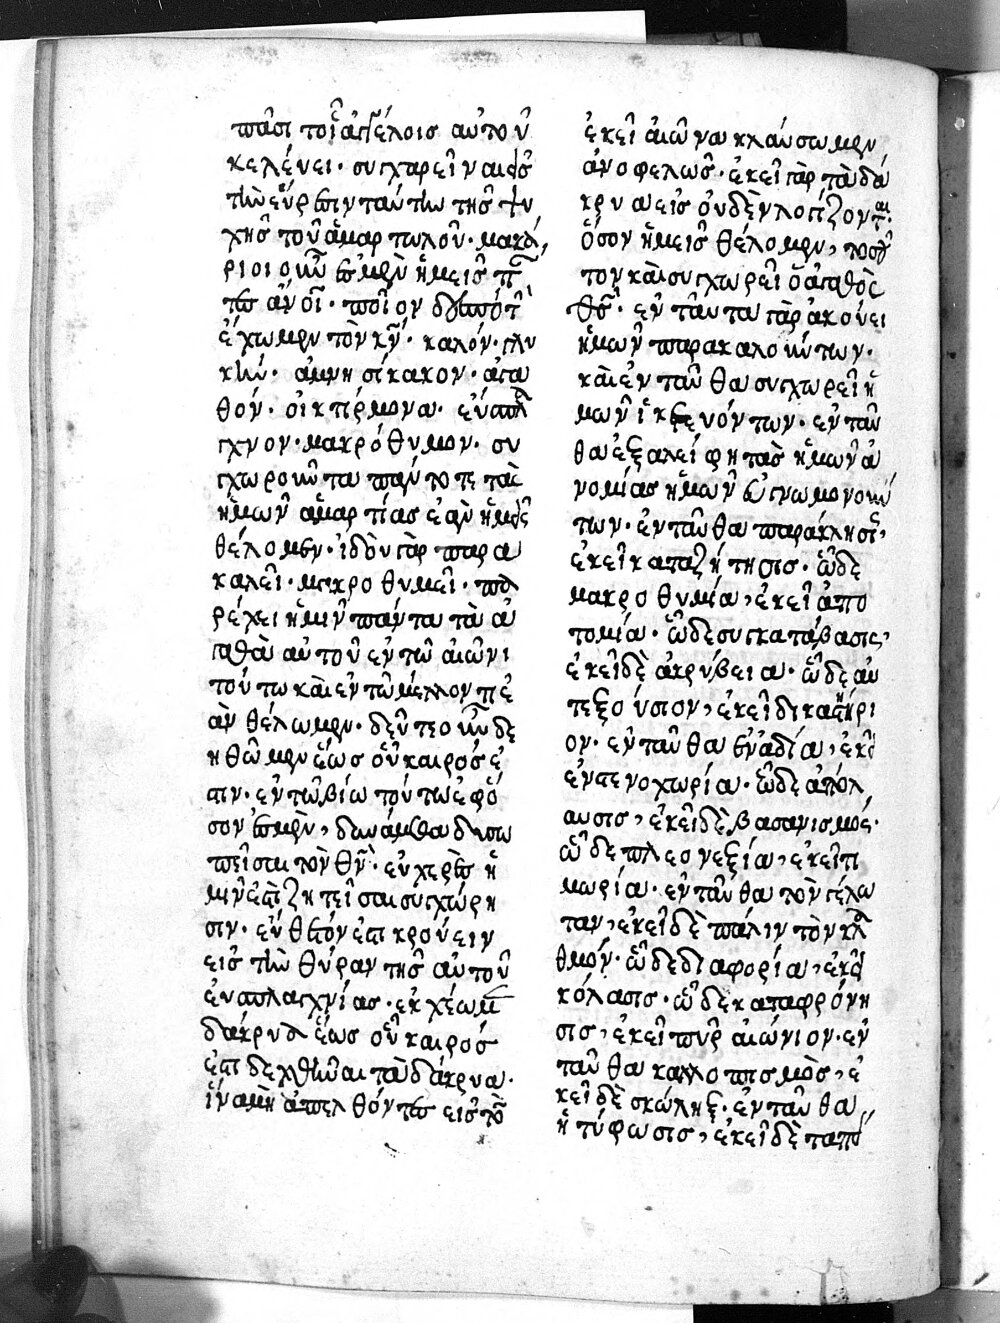 πᾶσι τοῖς ἀγγέλοις αὐτοῦ
κελεύει· συγχαρεῖναι εἰς
τὴν εὕρεσιν ταύτην τῆς ψυ
χῆς τοῦ ἁμαρτωλοῦ· μακά
ριοι οὖν ἐσμὲν ἡμεῖς πάν
τες ἄνοι· ποῖον δεσπότην
ἔχωμεν τὸν κν· καλόν· γλυ
κὺν· ἀμνησίκακον· ἀγα
θόν· οἰκτίρμονα· εὔσπλα
γχνον· μακρόθυμον· συ
γχωροῦντα πάντοτε τὰς
ἡμῶν ἁμαρτίας ἐὰν ἡμεῖς
θέλομεν· ἰδοὺ γὰρ παρα
καλεῖ· μακροθυμεῖ· πα
ρέχει ἡμῖν πάντα τὰ ἀ
γαθὰ αὐτοῦ ἐν τῶ αἰῶνι
τούτω καὶ ἐν τῶ μέλλοντι ἐ
ὰν θέλωμεν· δεῦτε οὖν δε
ηθῶμεν ἕως οὗ καιρός ἐ
στιν· ἐν τῶ βίω τούτω ἐφό
σον ἐσμὲν, δυνάμεθα δυσω
πεῖσαι τὸν θν· εὐχερὲς ἡ
μῖν ἐστὶ ζητεῖσαι συγχώρη
σιν· εὔθετόν ἐστι κρούειν
εἰς τὴν θύραν τῆς αὐτοῦ
εὐσπλαγχνίας· ἐκχέωμεν
δάκρυα ἕως οὗ καιρός
ἐστι δεχθῆναι τὰ δάκρυα·
ἵνα μὴ ἀπελθόντες εἰς τὸν
ἐκεῖ αἰῶνα κλαύσωμεν
ἀνοφελῶς· ἐκεῖ γὰρ τὰ δά
κρυα εἰς οὐδὲν λογίζονται·
ὅσον ἡμεῖς θέλομεν, τοσοῦ
τον καὶ συγχωρεῖ ὁ ἀγαθὸς
θς· ἐνταῦτα γὰρ ἀκούει
ἡμῶν παρακαλούντων·
καὶ ἐνταῦθα συγχωρεῖ ἡ
μῶν ἱκετευόντων· ἐνταῦ
θα ἐξαλείφη τὰς ἡμῶν ἀ
νομίας ἡμῶν εὐγνωμονούν
των· ἐνταῦθα παράκλησις,
ἐκεῖ καταζήτησις· ὧδε
μακροθυμία, ἐκεῖ ἀπο
τομία· ὧδε συγκατάβασις,
ἐκεῖ δὲ ἀκρίβεια· ὧδε αὐ
τεξούσιον, ἐκεῖ δικαστήρι
ον· ἐνταῦθα ἐνάδια, ἐκεῖ
ἐν στενοχωρία· ὧδε ἀπόλ
αυσις, ἐκεῖ δὲ βασανισμός·
ὧδε πλεονεξία, ἐκεῖ τι
μωρία· ἐνταῦθα τὸν γέλω
ταν, ἐκεῖ δὲ πάλιν τὸν κλα
θμόν· ὧδε διαφορία, ἐκεῖ
κόλασις· ὧδε καταφρόνη
σις, ἐκεῖ πῦρ αἰώνιον· ἐν
ταῦθα καλλοπισμὸς, ἐ
κεῖ δὲ σκώληξ· ἐνταῦθα
ἡ τύφωσις, ἐκεῖ δὲ ταπεί